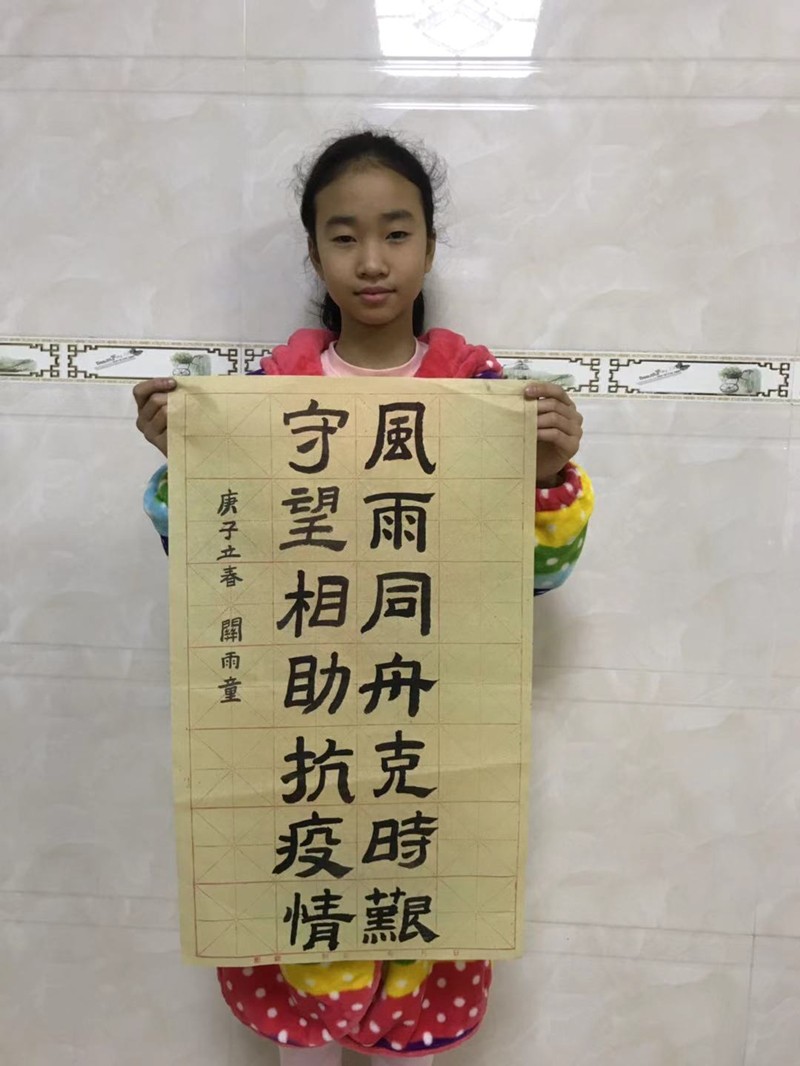 風雨同舟克時艱
守望相助抗疫情
庚子立春 關雨童